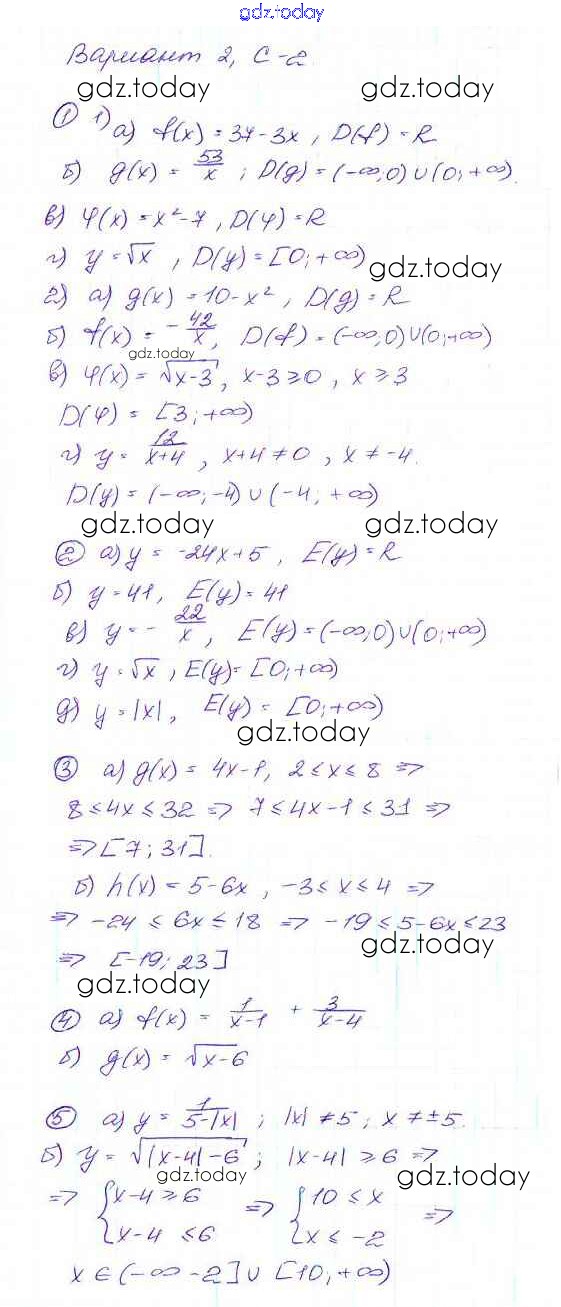 gdz.today
Вариант 2, С-2.
gdz.today gdz.today
① 1) а) f(x) = 37-3x , D(f) = R
б) g(x) = 53/x ; D(g) = (-∞;0) ∪ (0; +∞).
в) φ(x) = x²-7 , D(φ) = R
г) y = √x , D(y) = [0; +∞)
gdz.today
2) а) g(x) = 10-x² , D(g) = R
б) f(x) = -42/x , D(f) = (-∞;0) ∪ (0;+∞)
gdz.today
в) φ(x) = √(x-3) , x-3 ≥ 0 , x ≥ 3
D(φ) = [3; +∞)
г) y = 12/(x+4) , x+4 ≠ 0 , x ≠ -4.
D(y) = (-∞; -4) ∪ (-4; +∞)
gdz.today gdz.today
② а) y = -24x+5 , E(y) = R
б) y = 41 , E(y) = 41
в) y = -22/x , E(y) = (-∞;0) ∪ (0;+∞)
г) y = √x , E(y) = [0; +∞)
д) y = |x| , E(y) = [0; +∞)
gdz.today
③ а) g(x) = 4x-1, 2 ≤ x ≤ 8 =>
8 ≤ 4x ≤ 32 => 7 ≤ 4x-1 ≤ 31 =>
=> [7; 31].
б) h(x) = 5-6x , -3 ≤ x ≤ 4 =>
=> -24 ≤ 6x ≤ 18 => -19 ≤ 5-6x ≤ 23
gdz.today
=> [-19; 23]
gdz.today
④ а) f(x) = 1/(x-1) + 3/(x-4)
б) g(x) = √(x-6)
⑤ а) y = 1/(5-|x|) ; |x| ≠ 5 ; x ≠ ±5.
б) y = √(|x-4|-6) ; |x-4| ≥ 6 =>
gdz.today gdz.today
=> { x-4 ≥ 6 => { 10 ≤ x =>
x-4 ≤ 6 x ≤ -2
x ∈ (-∞ -2] ∪ [10; +∞)